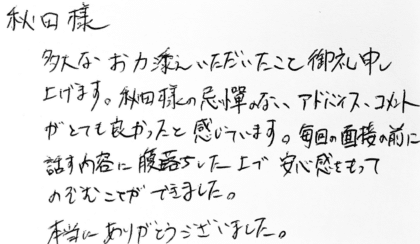 秋田様
多大なお力添えいただいたこと御礼申し
上げます。秋田様の忌憚のない、アドバイス、コメント
がとても良かったと感じています。毎回の面接の前に
話す内容に腹落ちした上で安心感をもって
のぞむことができました。
本当にありがとうございました。